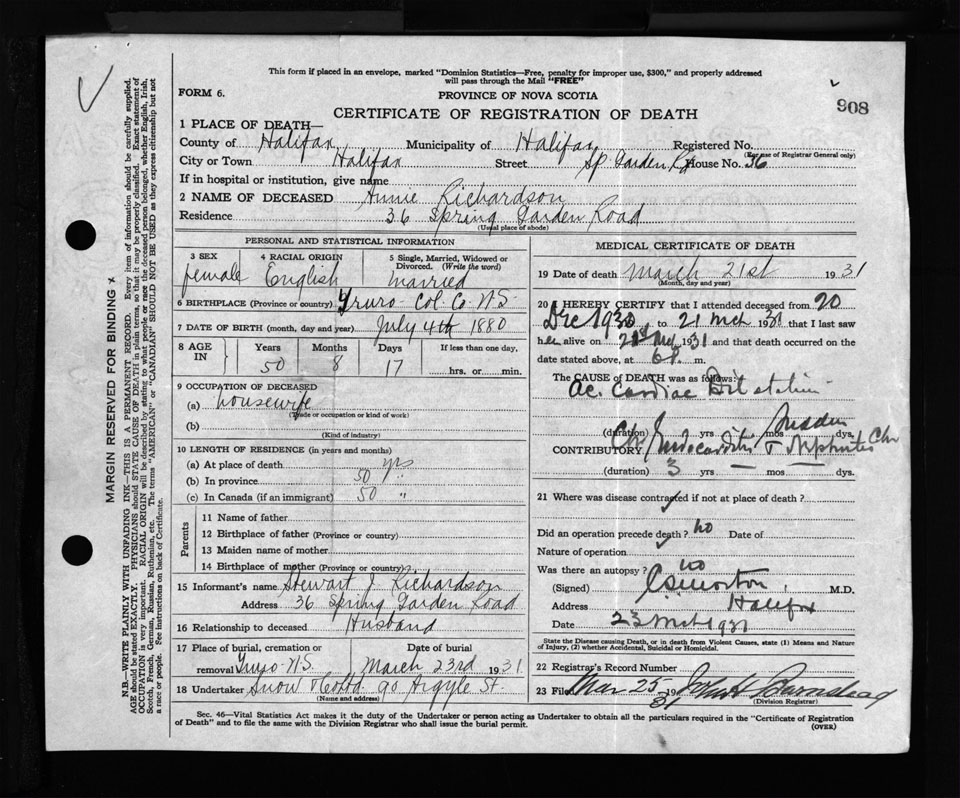 This form if placed in an envelope, marked "Dominion Statistics—Free, penalty for improper use, $300," and properly addressed
will pass through the Mail "FREE"
FORM 6.
PROVINCE OF NOVA SCOTIA
908
CERTIFICATE OF REGISTRATION OF DEATH
1 PLACE OF DEATH—
County of Halifax Municipality of Halifax Registered No.
(For use of Registrar General only)
City or Town Halifax Street Sp. Garden Rd House No. 36
If in hospital or institution, give name
2 NAME OF DECEASED Annie Richardson
Residence 36 Spring Garden Road
(Usual place of abode)
PERSONAL AND STATISTICAL INFORMATION
3 SEX 4 RACIAL ORIGIN 5 Single, Married, Widowed or
Divorced. (Write the word)
female English married
6 BIRTHPLACE (Province or country) Truro Col. Co. N.S.
7 DATE OF BIRTH (month, day and year) July 4th 1880
8 AGE IN Years Months Days If less than one day,
50 8 17 hrs. or min.
9 OCCUPATION OF DECEASED
(a) housewife
(Trade or occupation or kind of work)
(b)
(Kind of industry)
10 LENGTH OF RESIDENCE (in years and months)
(a) At place of death yrs
(b) In province 50 "
(c) In Canada (if an immigrant) 50 "
Parents
11 Name of father
12 Birthplace of father (Province or country)
13 Maiden name of mother
14 Birthplace of mother (Province or country)
15 Informant's name Stewart J. Richardson
Address 36 Spring Garden Road
16 Relationship to deceased Husband
17 Place of burial, cremation or Date of burial
removal Truro N.S. March 23rd 1931
18 Undertaker Snow & Co Ltd 90 Argyle St.
(Name and address)
MEDICAL CERTIFICATE OF DEATH
19 Date of death March 21st 1931
(Month, day and year)
20 I HEREBY CERTIFY that I attended deceased from 20
Dec 1930 to 21 Mch 1931 that I last saw
her alive on 21st Mch 1931 and that death occurred on the
date stated above, at 6 P. m.
The CAUSE of DEATH was as follows:
Ac. Cardiac Dilatation
(duration) yrs mos Sudden dys.
CONTRIBUTORY Chr Endocarditis & Nephritis Chr
(duration) 3 yrs — mos — dys.
21 Where was disease contracted if not at place of death?
Did an operation precede death? no Date of
Nature of operation
Was there an autopsy? no
(Signed) C S Morton M.D.
Address Halifax
Date 23 Mch 1931
State the Disease causing Death, or in death from Violent Causes, state (1) Means and Nature
of Injury, (2) whether Accidental, Suicidal or Homicidal.
22 Registrar's Record Number
23 Filed Mar 25 1931 John H Barnstead
(Division Registrar)
Sec. 46—Vital Statistics Act makes it the duty of the Undertaker or person acting as Undertaker to obtain all the particulars required in the "Certificate of Registration
of Death" and to file the same with the Division Registrar who shall issue the burial permit.
(OVER)
MARGIN RESERVED FOR BINDING
N.B.—WRITE PLAINLY WITH UNFADING INK—THIS IS A PERMANENT RECORD. Every item of information should be carefully supplied.
AGE should be stated EXACTLY. PHYSICIANS should STATE CAUSE OF DEATH in plain terms, so that it may be properly classified. Exact statement of
OCCUPATION is very important. RACIAL ORIGIN will be described by stating to what people or race the deceased person belonged, whether English, Irish,
Scotch, French, German, Russian, Ruthenian, etc. The terms "AMERICAN" or "CANADIAN" SHOULD NOT BE USED as they express citizenship but not
a race or people. See instructions on back of Certificate.